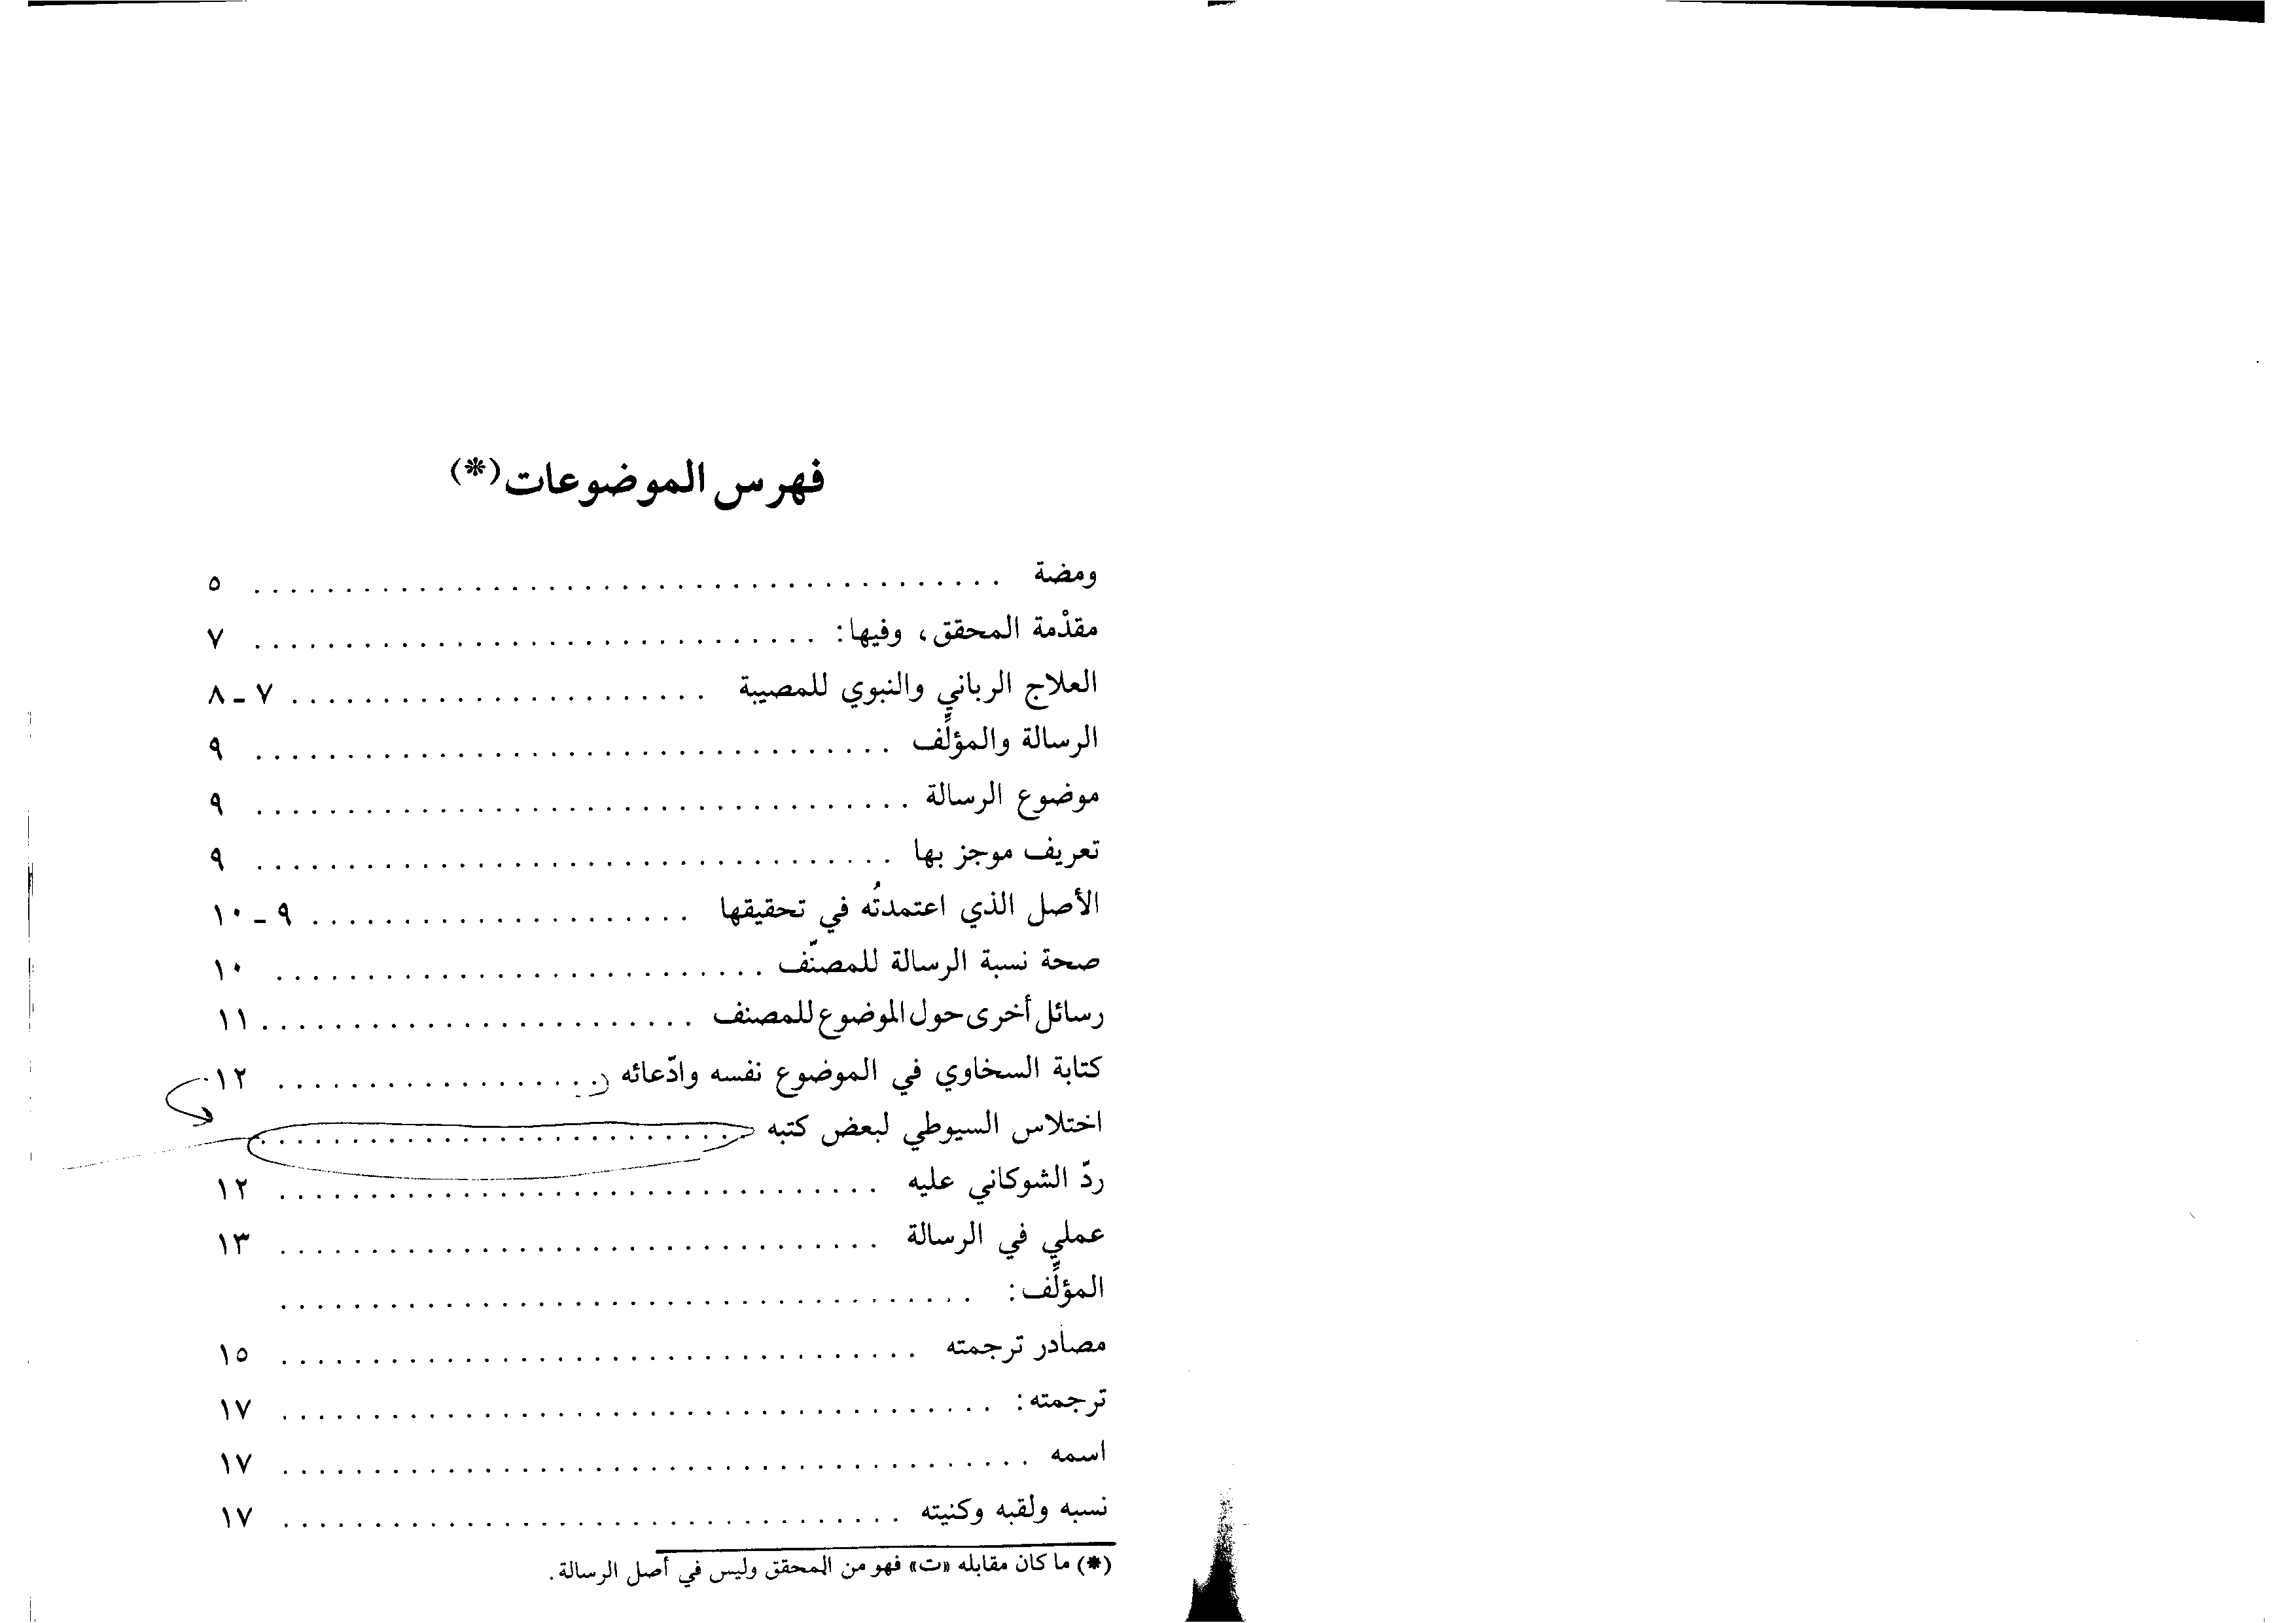 فهرس الموضوعات(*)
ومضة . . . . . . . . . . . . . . . . . . . . ٥
مقدْمة المحقق، وفيها: . . . . . . . . . . . . . . . . . . . . ٧
العلاج الرباني والنبوي للمصيبة . . . . . . . . . . . . . . . . . . . . ٧ - ٨
الرسالة والمؤلِّف . . . . . . . . . . . . . . . . . . . . ٩
موضوع الرسالة . . . . . . . . . . . . . . . . . . . . ٩
تعريف موجز بها . . . . . . . . . . . . . . . . . . . . ٩
الأصل الذي اعتمدتُه في تحقيقها . . . . . . . . . . . . . . . . . . . . ٩ - ١٠
صحة نسبة الرسالة للمصنّف . . . . . . . . . . . . . . . . . . . . ١٠
رسائل أخرى حول الموضوع للمصنف . . . . . . . . . . . . . . . . . . . . ١١
كتابة السخاوي في الموضوع نفسه وادّعائه . . . . . . . . . . . . . . . . . . ١٢
اختلاس السيوطي لبعض كتبه . . . . . . . . . . . . . . . . . . . .
ردّ الشوكاني عليه . . . . . . . . . . . . . . . . . . . . ١٢
عملي في الرسالة . . . . . . . . . . . . . . . . . . . . ١٣
المؤلِّف: . . . . . . . . . . . . . . . . . . . .
مصادر ترجمته . . . . . . . . . . . . . . . . . . . . ١٥
ترجمته: . . . . . . . . . . . . . . . . . . . . ١٧
اسمه . . . . . . . . . . . . . . . . . . . . ١٧
نسبه ولقبه وكنيته . . . . . . . . . . . . . . . . . . . . ١٧
(*) ما كان مقابله «ت» فهو من المحقق وليس في أصل الرسالة.